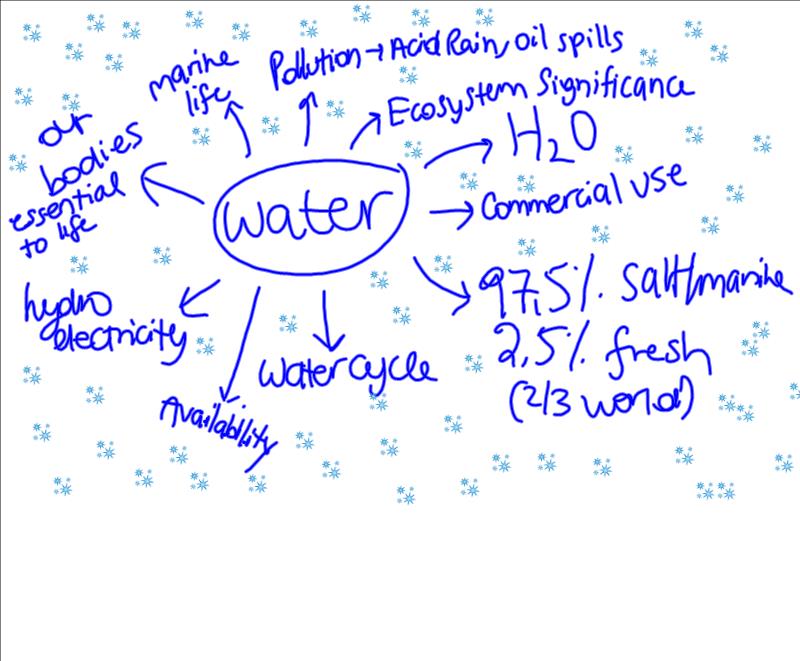 marine
life
Pollution → Acid Rain, Oil spills
Ecosystem Significance
our
bodies
essential
to life
H2O
Water
Commercial use
97,5% Salt/marine
2,5% fresh
(2/3 world)
hydro
electricity
Water cycle
Availability